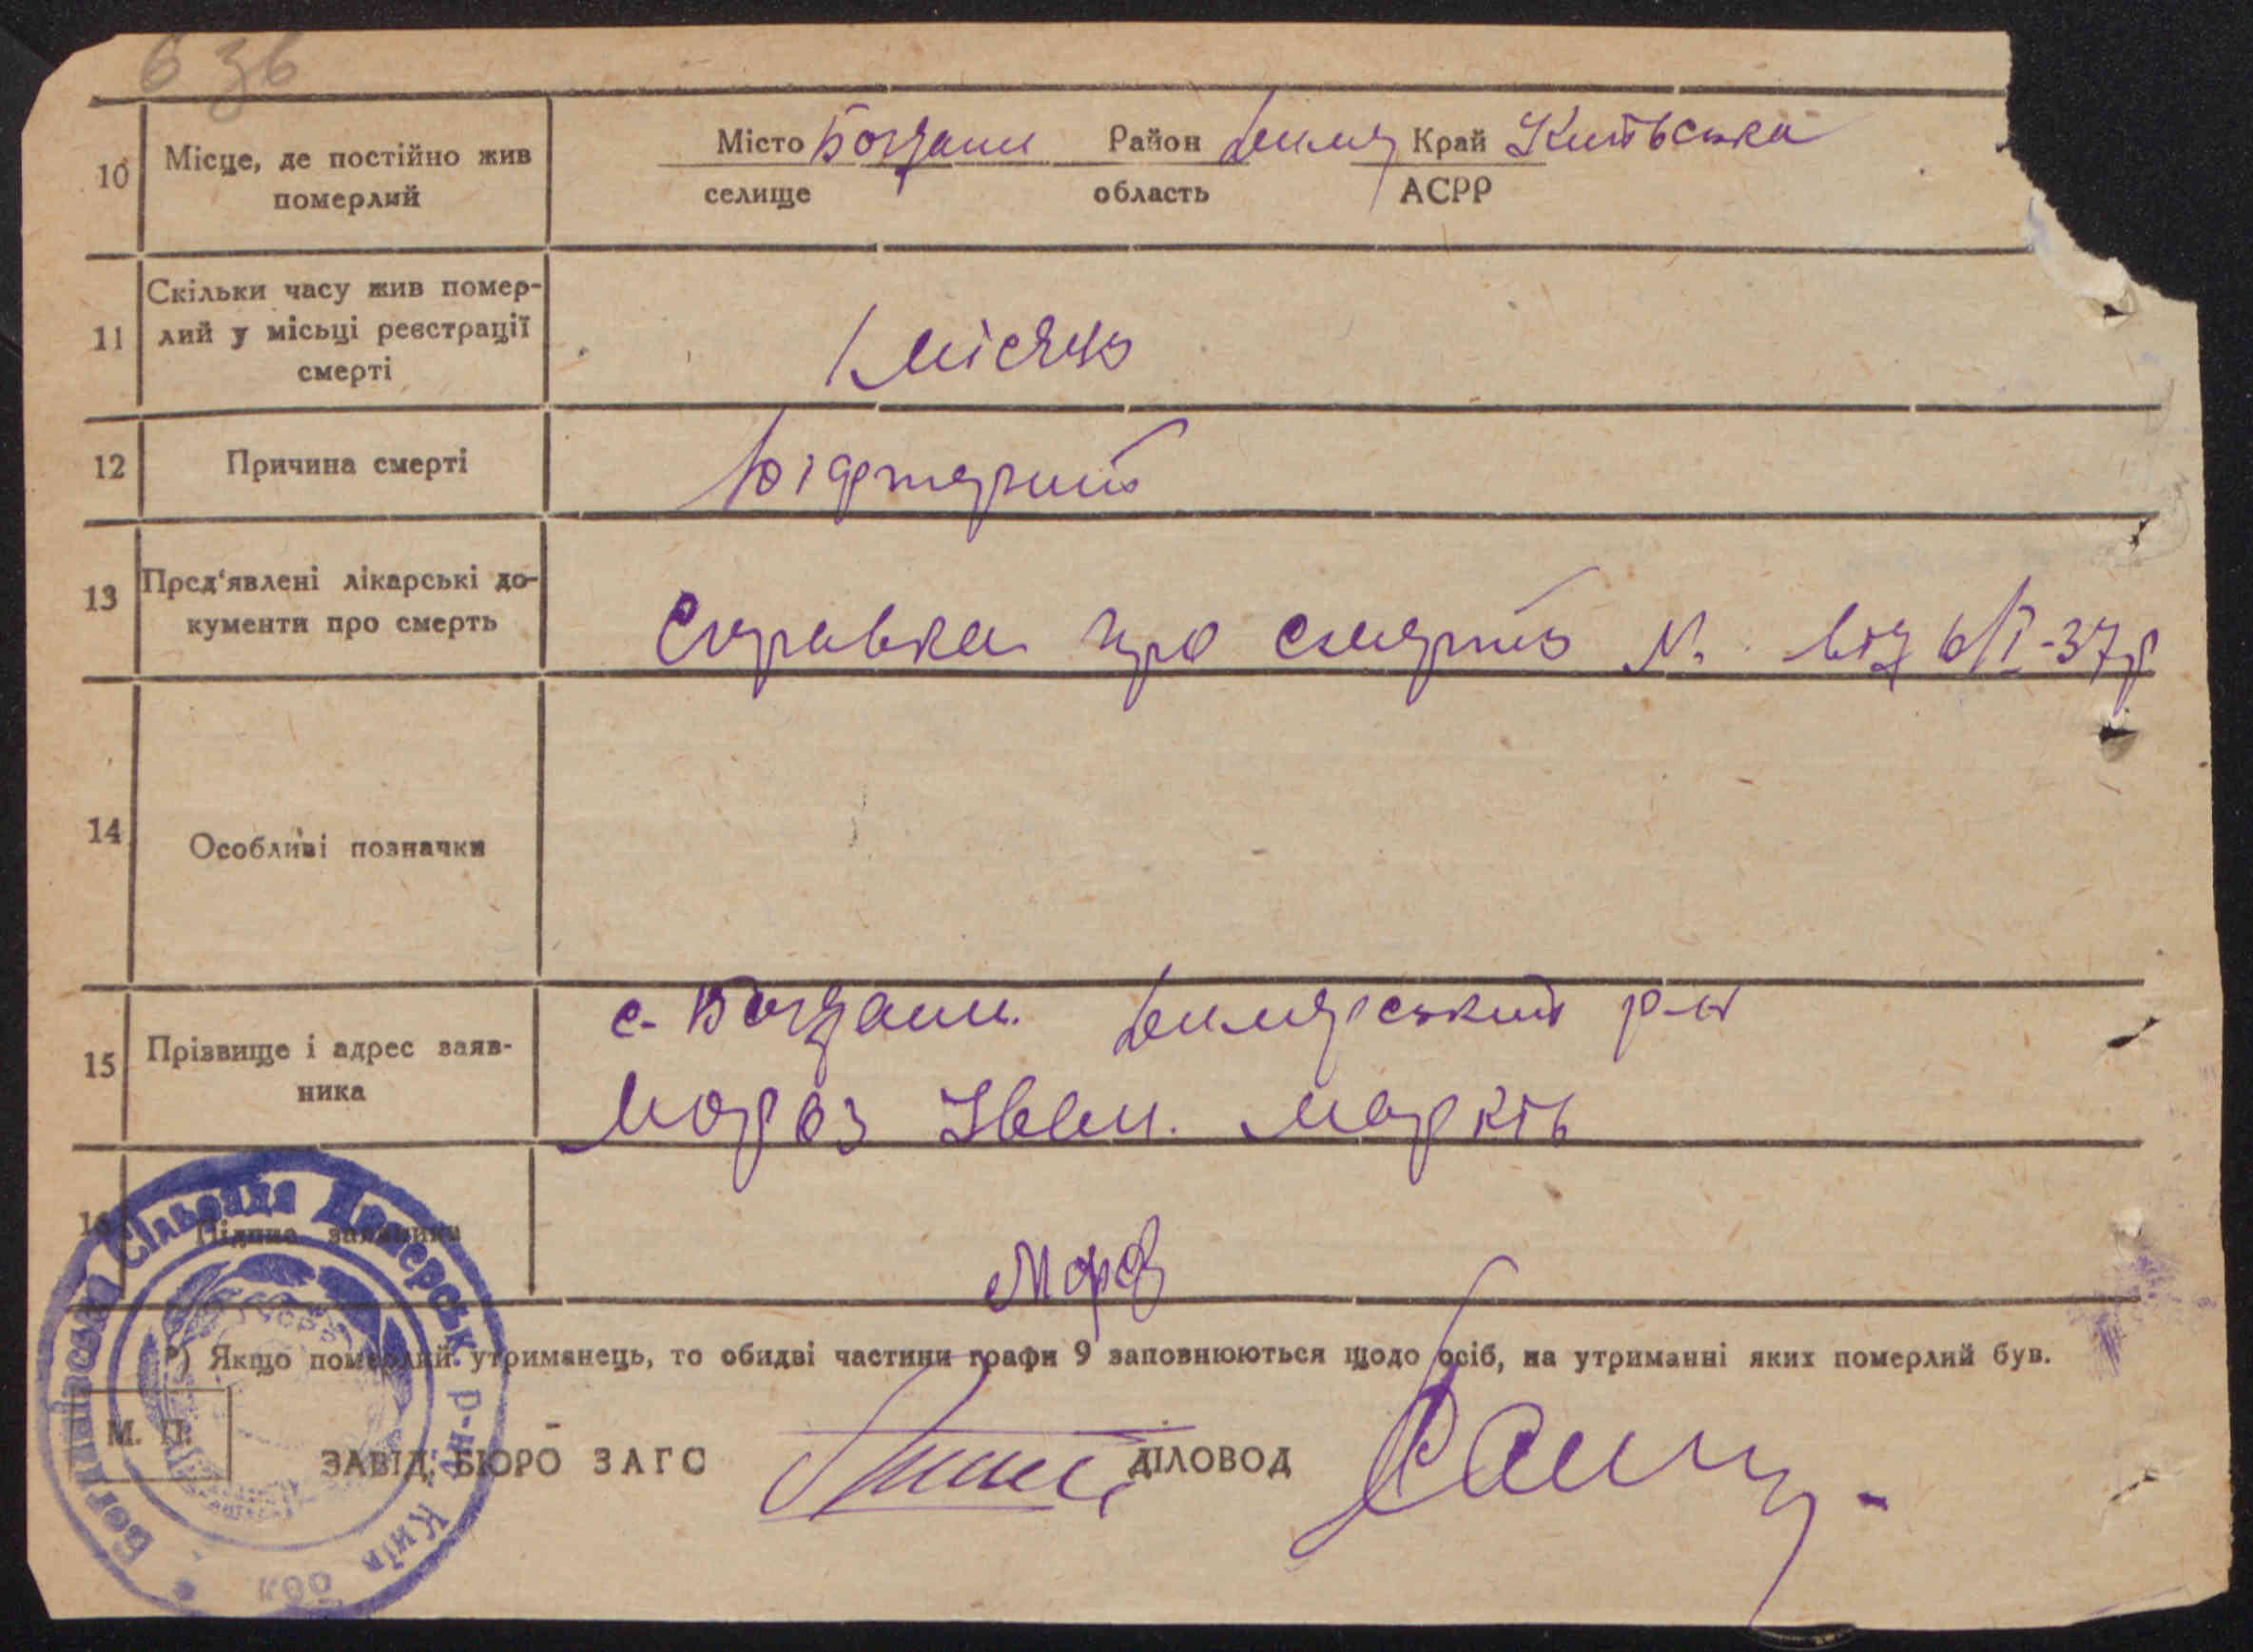 6 зв
10 Місце, де постійно жив померлий
Місто Богдани Район Димер Край Київська
селище область АСРР
11 Скільки часу жив помер-
лий у місьці реєстрації
смерті
1 місяць
12 Причина смерті
13 Пред'явлені лікарські до-
кументи про смерть
Справка про смерть № від 6/I-37р
14 Особливі позначки
15 Прізвище і адрес заяв-
ника
с. Богдани. Димерський р-н
Мороз Іван. Марків
16 Підпис заявника
Мороз
*) Якщо померлий утриманець, то обидві частини графи 9 заповнюються щодо осіб, на утриманні яких померлий був.
М. П.
ЗАВІД. БЮРО ЗАГС ДІЛОВОД
Богданівська Сільрада Димерськ. р-ну, Київ обл